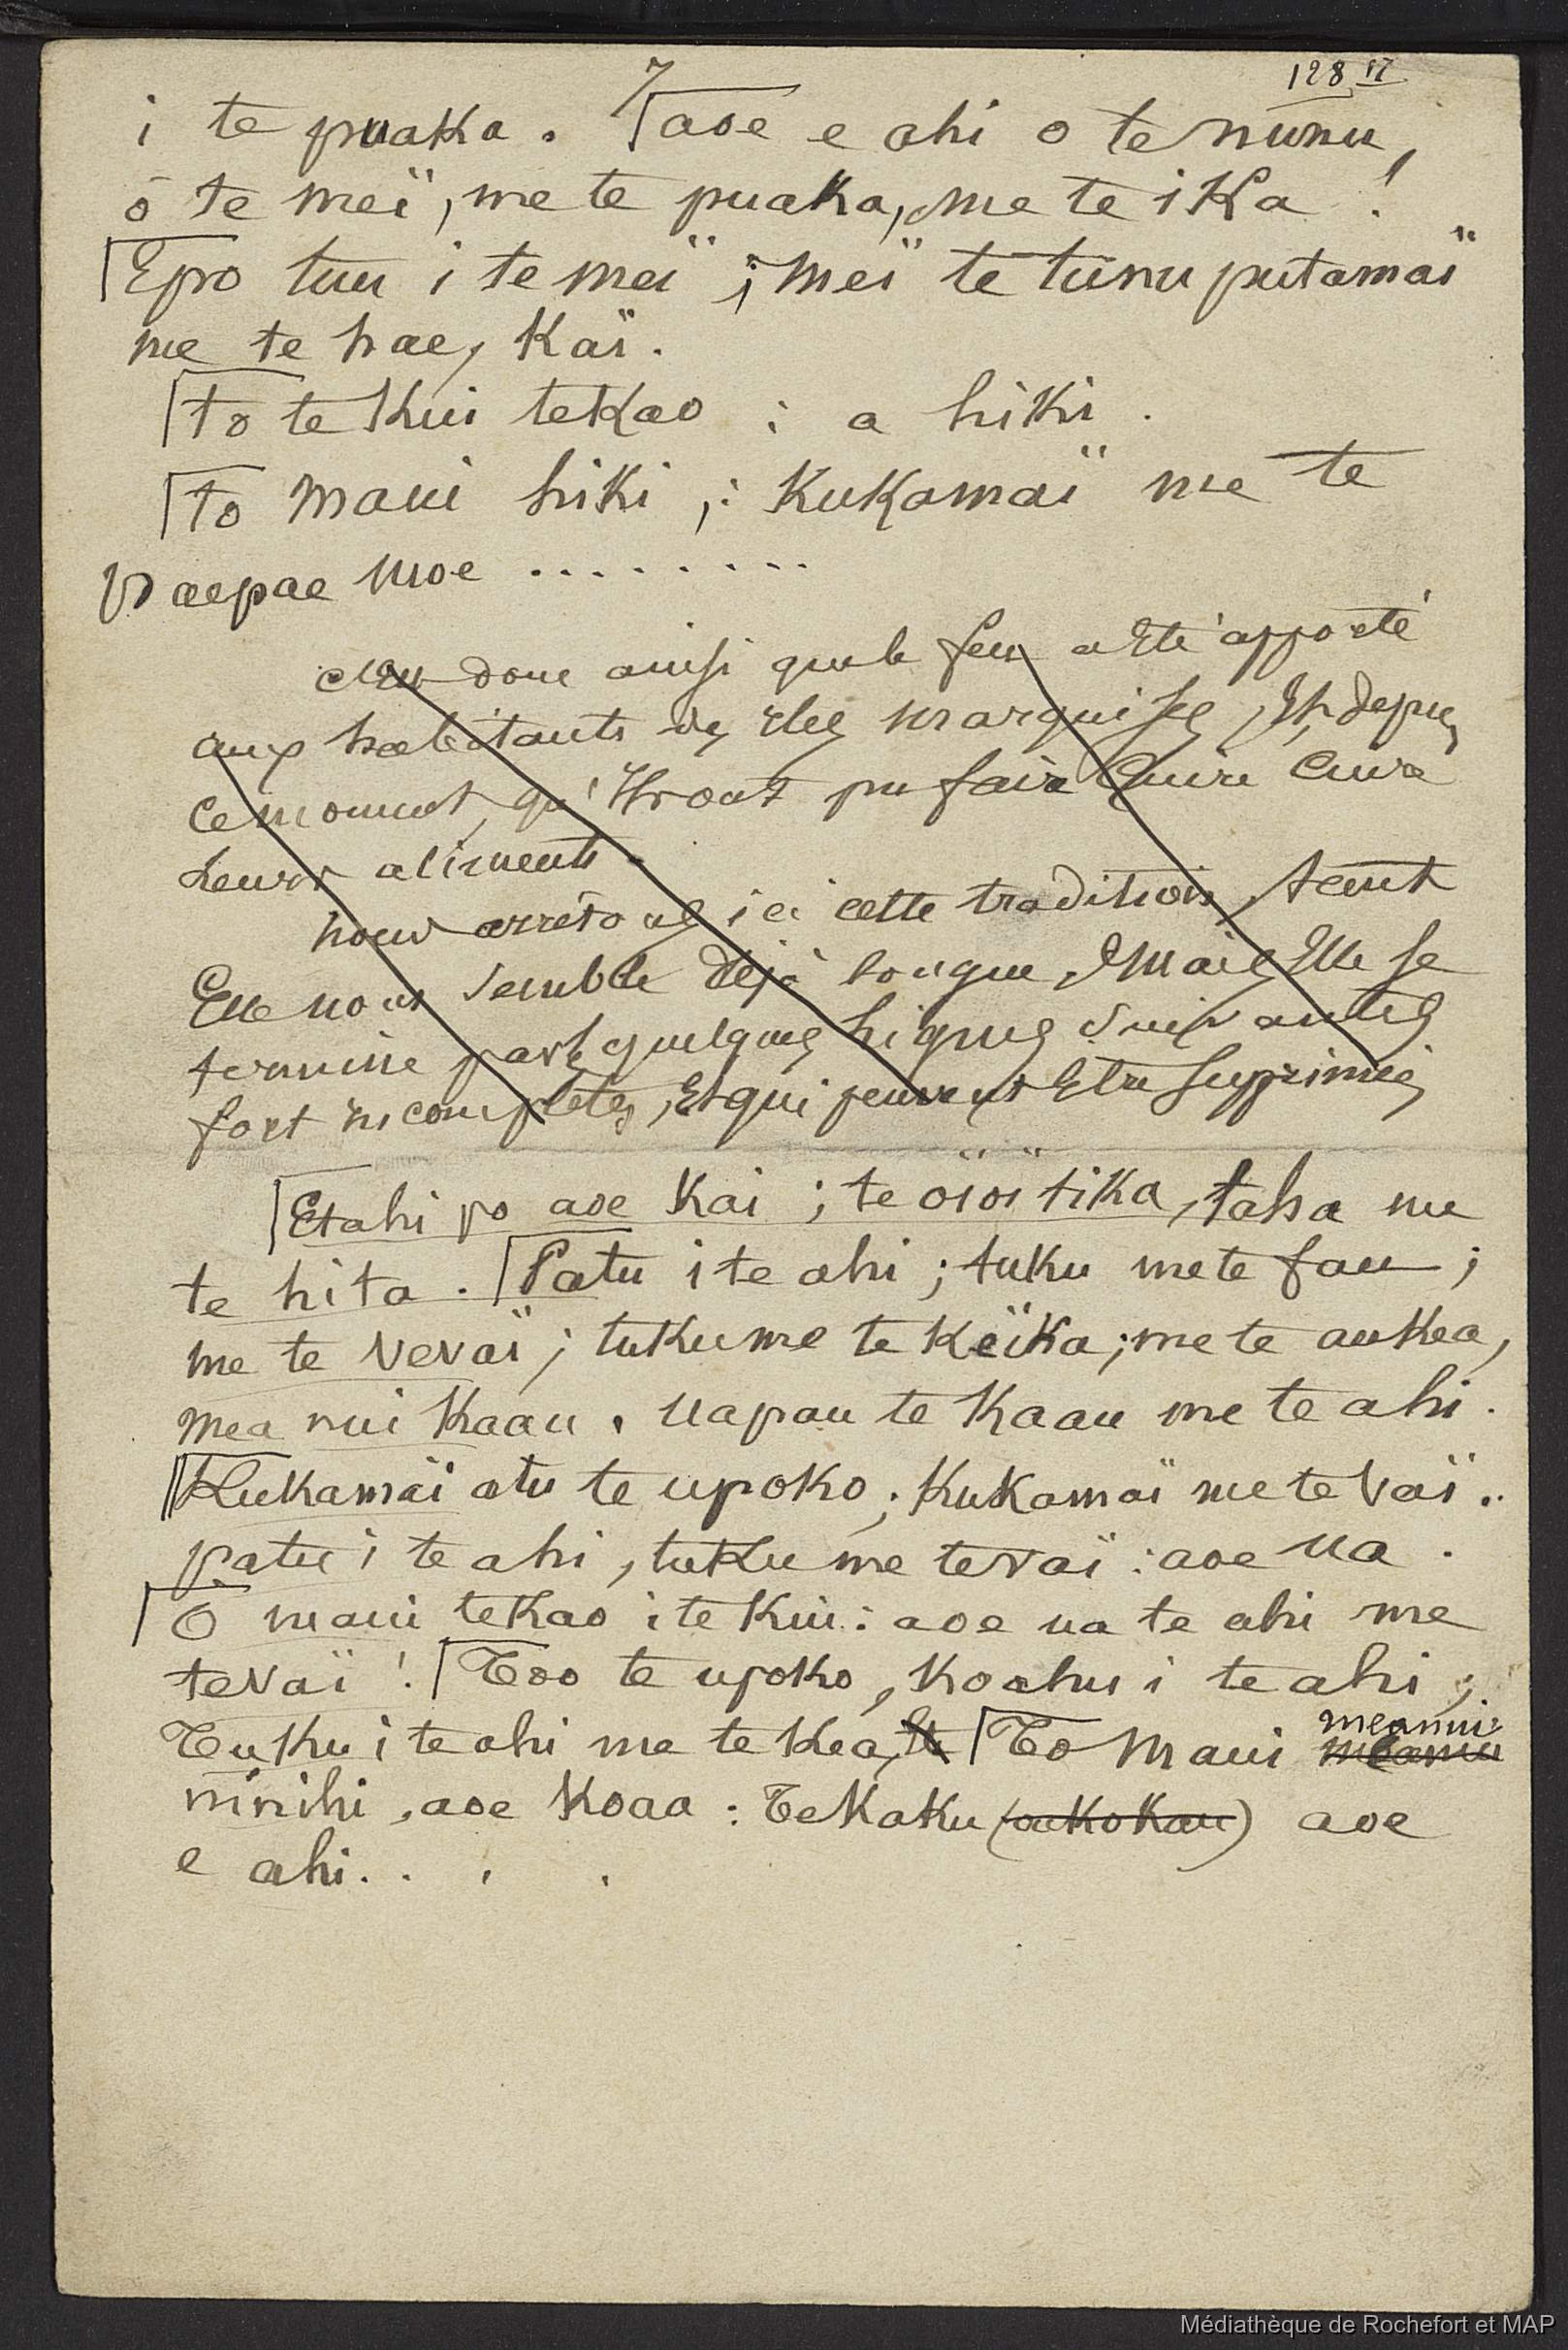 7
128 17
i te puaka. aoe e ahi o te nunu,
o te meï, me te puaka, me te ika !
Epo tuu i te meï ; meï te tunu putamaï
me te hae, Kaï.
to te Kui tekao : a hiki.
to maui hiki ; Kukamaï me te
Vaepae moe .........
donc ainsi que le feu a Eté apporté
aux habitants des Iles marquises, Et depuis
ce moment, qu'Ils ont pu faire Cuire Cuire
Leurs aliments.
nous arrêtons ici cette tradition, tant
Elle nous semble déjà longue, Mais Elle se
termine par quelques lignes suivantes
fort incomplètes, Et qui peuvent Etre supprimées
Etahi po aoe Kai ; te oïoï tika, taha me
te hita. Patu i te ahi ; tuku me te fau ;
me te vevaï ; tuku me te Keïka ; me te aukea,
mea nui Kaau. Uapau te Kaau me te ahi.
Kukamaï atu te upoko ; Kukamaï me te Vaï..
patu i te ahi, tuku me te vaï : aoe ua.
O maui tekao i te Kui : aoe ua te ahi me
te vaï ! Too te upoko, koahu i te ahi ;
Tuku i te ahi me te Kea, To Maui
meanui
ninihi, aoe koaa : Tekaku (aukokau) aoe
e ahi.. . .
Médiathèque de Rochefort et MAP